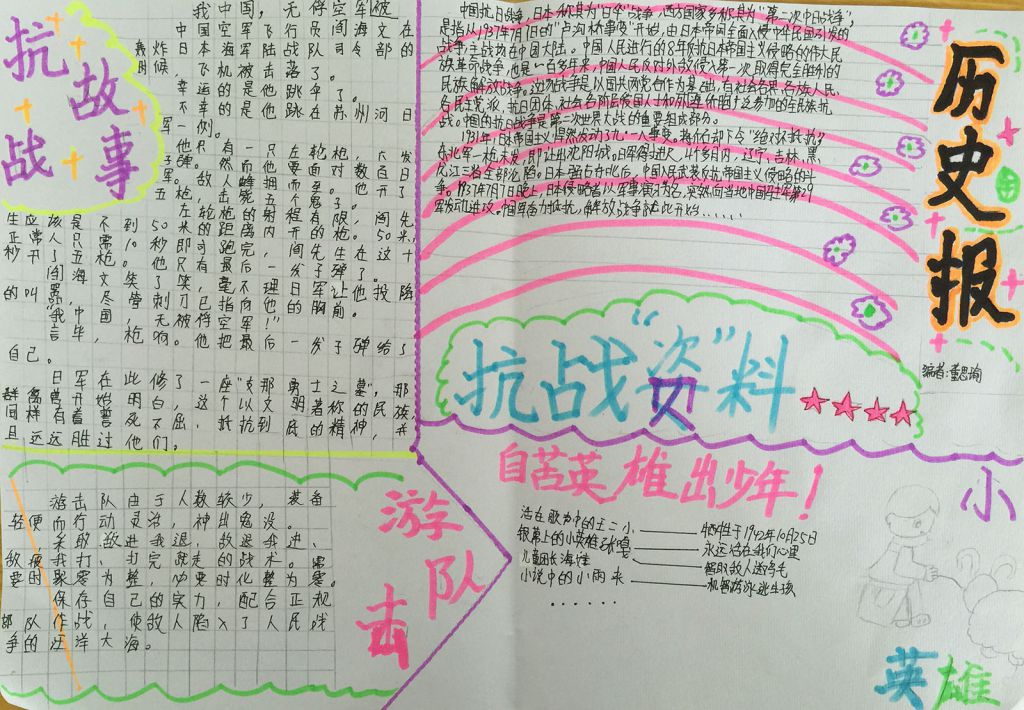 抗战故事
我中国，无俘空军被
中国空军飞行员阎海文在
轰炸日本海军陆战队司令部的
时候，飞机被击落了。
幸运的是他跳伞了。
不幸的是他跳在苏州河日
军一侧。
他只有一只左轮枪，六发
子弹。然而他要面对数百日
军。敌人蜂拥而至。他开了
五枪，击毙五个鬼子。
左轮枪的射程有限，阎先
生应该是不到50米的距离内开的枪。50米，
正常人只需10秒即可跑完，阎先生在这十
秒开了五枪。他只有最后一发子弹了。
阎海文笑了笑，毫不理日军让他投降
的叫嚣，尽管刺刀已指向他的胸前。
“我中国，无被俘空军！”
言毕，枪响。他把最后一发子弹给了
自己。
日军在此修了一座“支那勇士之墓”，那
群禽兽开始明白，这个以文明著称的民族，
同样有着誓死不屈，抵抗到民的精神，并
且远远胜过他们。
游击队
游击队由于人数较少，装备
轻便而行动灵活，神出鬼没。
采取敌进我退，敌退我进，
敌疲我打，打完就走的战术。需
要时聚零为整，必要时化整为零。
保存自己的实力，配合正规
部队作战，使敌人陷入了人民战
争的汪洋大海。
中国抗日战争，日本称其为“日华”战争，西方国家多称其为“第二次中日战争”，
是指从1937年7月7日的“卢沟桥事变”开始，由日本帝国全面入侵中华民国引发的
战争，主战场在中国大陆。中国人民进行的8年抗日本帝国主义侵略的伟大民
族革命战争，也是一百多年来中国人民反对外敌侵入第一次取得完全胜利的
民族解放战争。这场战争是以国共两党合作为基础，有社会各界、各族人民、
1931年日本帝国主义悍然发动了九·一八事变。蒋介石却下令“绝对不抵抗”，
东北军一枪未发，即让出沈阳城。日军得以进入，4个多月内，辽宁、吉林、黑
龙江三省全部沦陷。日本强占东北后，中国人民武装反抗帝国主义侵略的斗
争。1937年7月7日晚上，日本侵略者以军事演习为名，突然向当地中国驻军第29
军发动进攻。中国军奋力抵抗，解放战争就在此开始……
历史报
编者：董思询
抗战“资”料
自苦英雄出少年！
活在歌力中的王二小——牺牲于1942年10月25日
银幕上的小英雄张嘎——永远活在我们心里
儿童团长海娃——智取敌人送鸡毛
小说中的小雨来——机智游泳逃生孩
……
小英雄